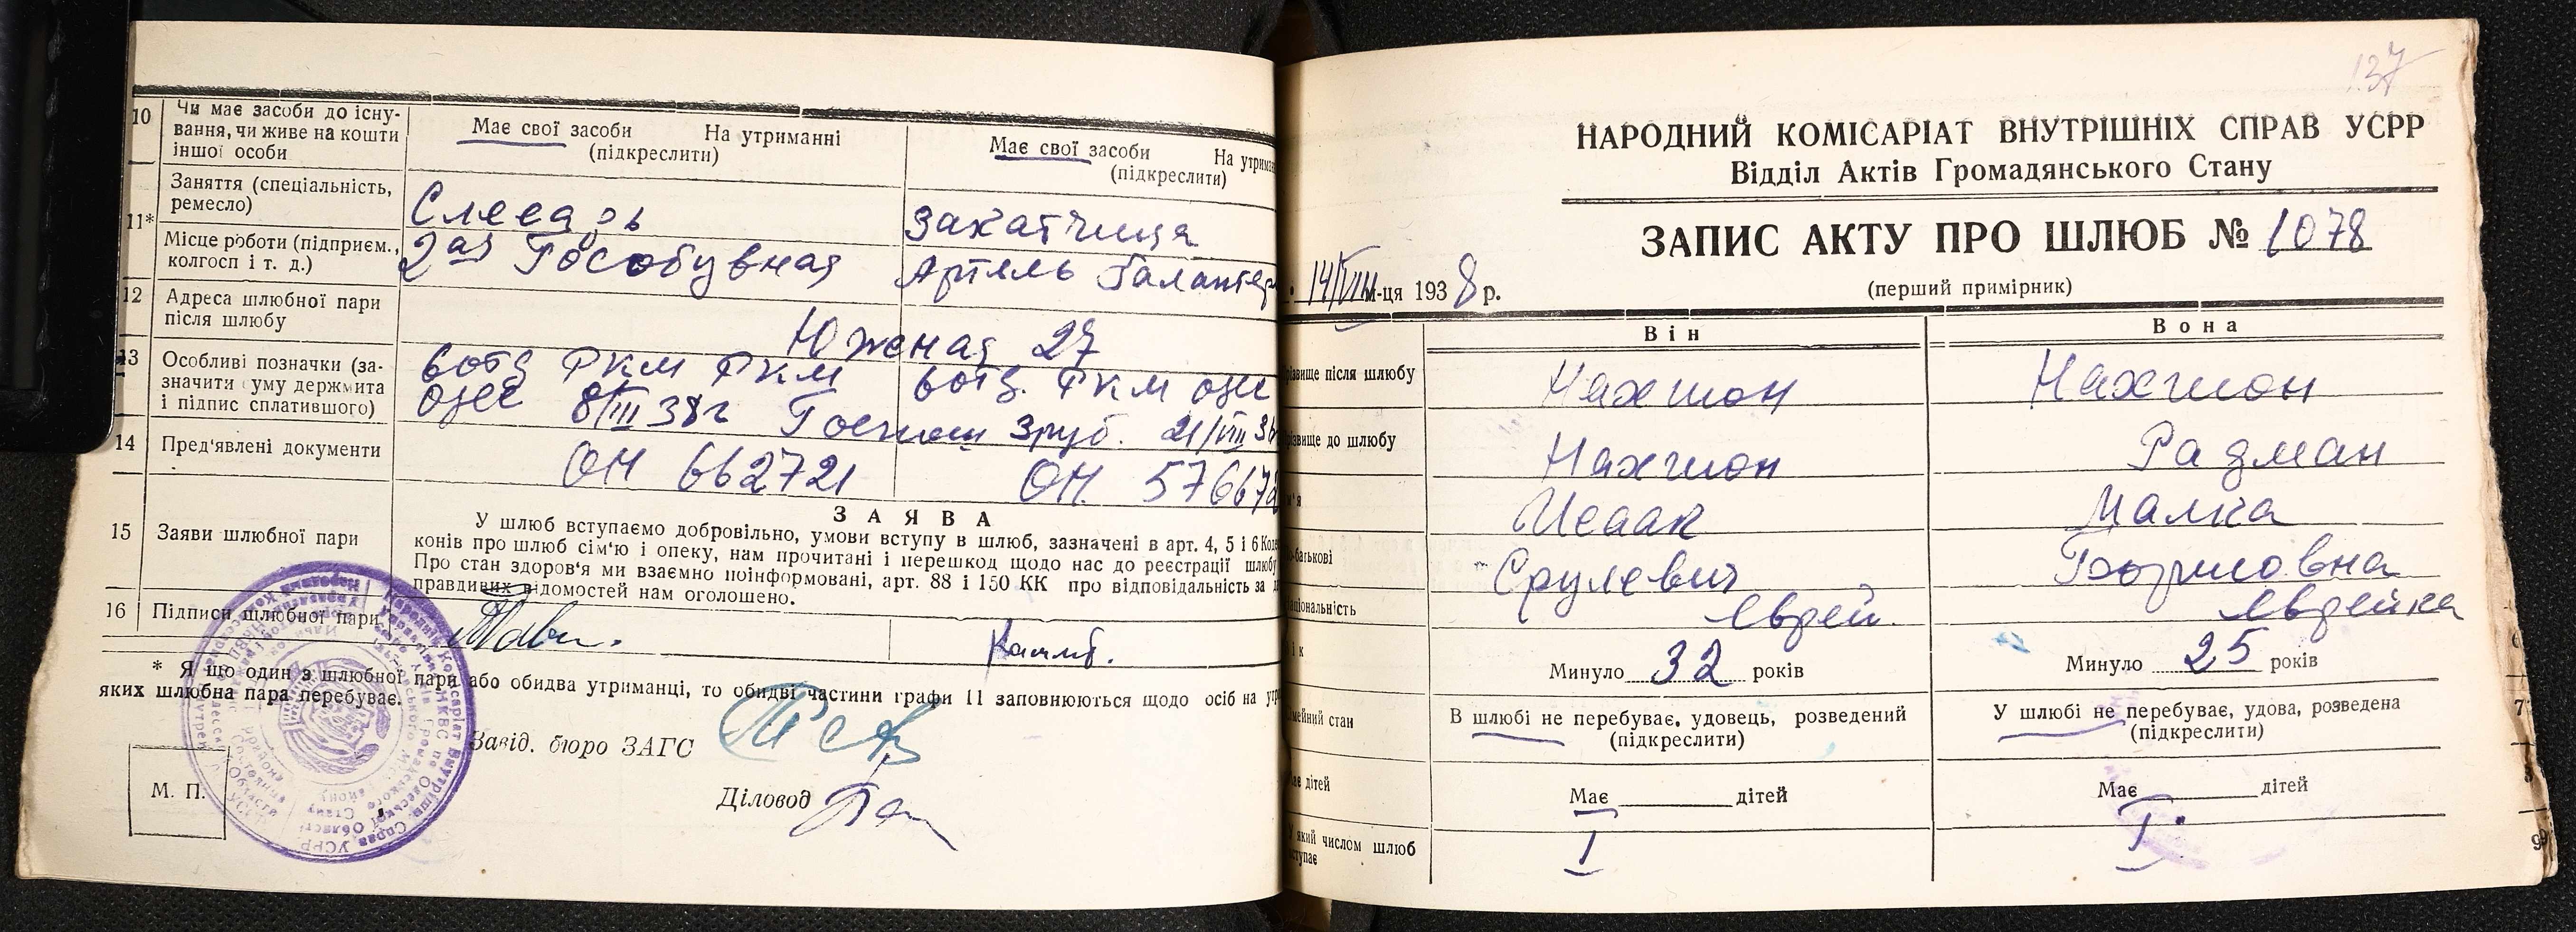 10 Чи має засоби до існу-
вання, чи живе на кошти
іншої особи
Має свої засоби На утриманні
(підкреслити)
Має свої засоби На утрима
(підкреслити)
11*
Заняття (спеціальність,
ремесло)
Слесарь
Закатчица
Місце роботи (підприєм.,
колгосп і т. д.)
2ая Гособувная
Артель Галантер
12 Адреса шлюбної пари
після шлюбу
Южная 27
13 Особливі позначки (за-
значити суму держмита
і підпис сплатившого)
РКМ РКМ
РКМ
8/III 38г
3руб. 21/VIII 3
14 Пред'явлені документи
ОН 662721
ОН. 57667
15 Заяви шлюбної пари
ЗАЯВА
У шлюб вступаємо добровільно, умови вступу в шлюб, зазначені в арт. 4, 5 і 6 Коде
конів про шлюб сім'ю і опеку, нам прочитані і перешкод щодо нас до реєстрації шлюбу
Про стан здоров'я ми взаємно поінформовані, арт. 88 і 150 КК про відповідальність за
правдивих відомостей нам оголошено.
16 Підписи шлюбної пари
* Я що один з шлюбної пари або обидва утриманці, то обидві частини графи 11 заповнюються щодо осіб на
яких шлюбна пара перебуває.
Завід. бюро ЗАГС
Діловод
М. П.
137
НАРОДНИЙ КОМІСАРІАТ ВНУТРІШНІХ СПРАВ УСРР
Відділ Актів Громадянського Стану
ЗАПИС АКТУ ПРО ШЛЮБ № 1078
(перший примірник)
14/VIII м-ця 1938 р.
Він
Вона
різвище після шлюбу
Нахшон
Нахшон
різвище до шлюбу
Нахшон
Радман
м'я
Исаак
Малка
о-батькові
Срулевич
Борисовна
аціональність
Еврей.
Еврейка
ік
Минуло 32 років
Минуло 25 років
імейний стан
В шлюбі не перебуває, удовець, розведений
(підкреслити)
У шлюбі не перебуває, удова, розведена
(підкреслити)
7
ає дітей
Має дітей
Має дітей
У який числом шлюб
вступає
I
I
9